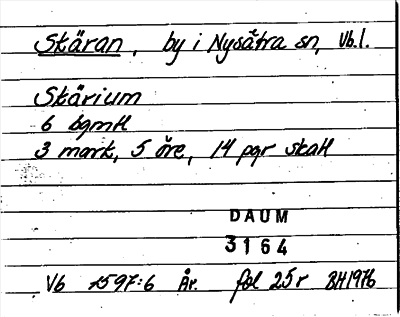 Skäran, by i Nysätra sn, Vb.l.
Skärium
6 bgmtl
3 mark, 5 öre, 14 pgr skatt
DAUM
3164
Vb 1597:6 År. fol 25r BH1976